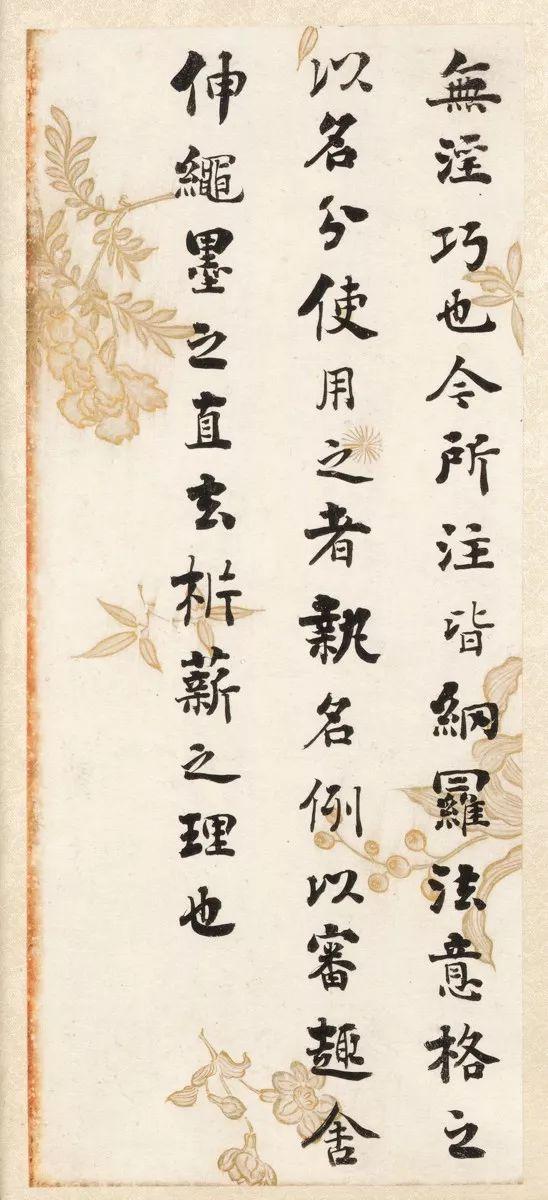 無淫巧也今所注皆網羅法意格之
以名分使用之者執名例以審趣舍
伸繩墨之直去析薪之理也